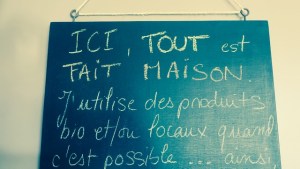 ICI, TOUT est
FAIT MAISON.
J'utilise des produits
bio et/ou locaux quand
c'est possible... ainsi,